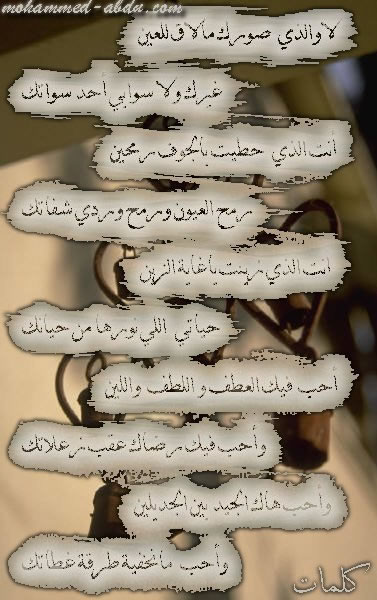 mohammed-abdu.com
لا والذي صورك ما لاق للعين
غيرك ولا سوابي أحد سواتك
أنت الذي حطيت بالجوف رمحين
رمح العيون ورمح وردي شفاتك
انت الذي زينت ياغاية الزين
حياتي اللي نورها من حياتك
أحب فيك العطف و اللطف واللين
وأحب فيك رضاك عقب زعلاتك
وأحب هاك الجيد بين الجديلين
وأحب ما تخفية طرقة غطاتك
كلمات